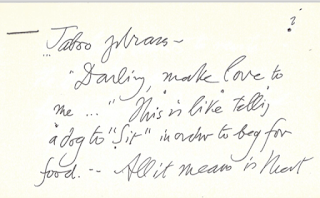 ?
Taboo phrases -
"Darling, make love to
me ..." This is like telling
a dog to "Sit" in order to beg for
food. -- All it means is that